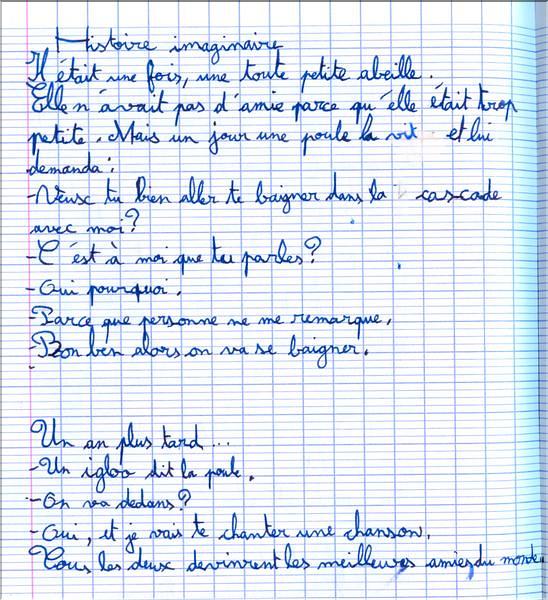 Histoire imaginaire
Il était une fois, une toute petite abeille.
Elle n'avait pas d'amie parce qu'elle était trop
petite. Mais un jour une poule la vit et lui
demanda :
- Veux tu bien aller te baigner dans la cascade
avec moi ?
- C'est à moi que tu parles ?
- Oui pourquoi.
- Parce que personne ne me remarque.
- Bon ben alors on va se baigner.
Un an plus tard...
- Un igloo dit la poule.
- On va dedans ?
- Oui, et je vais te chanter une chanson.
Tous les deux devinrent les meilleures amies du monde